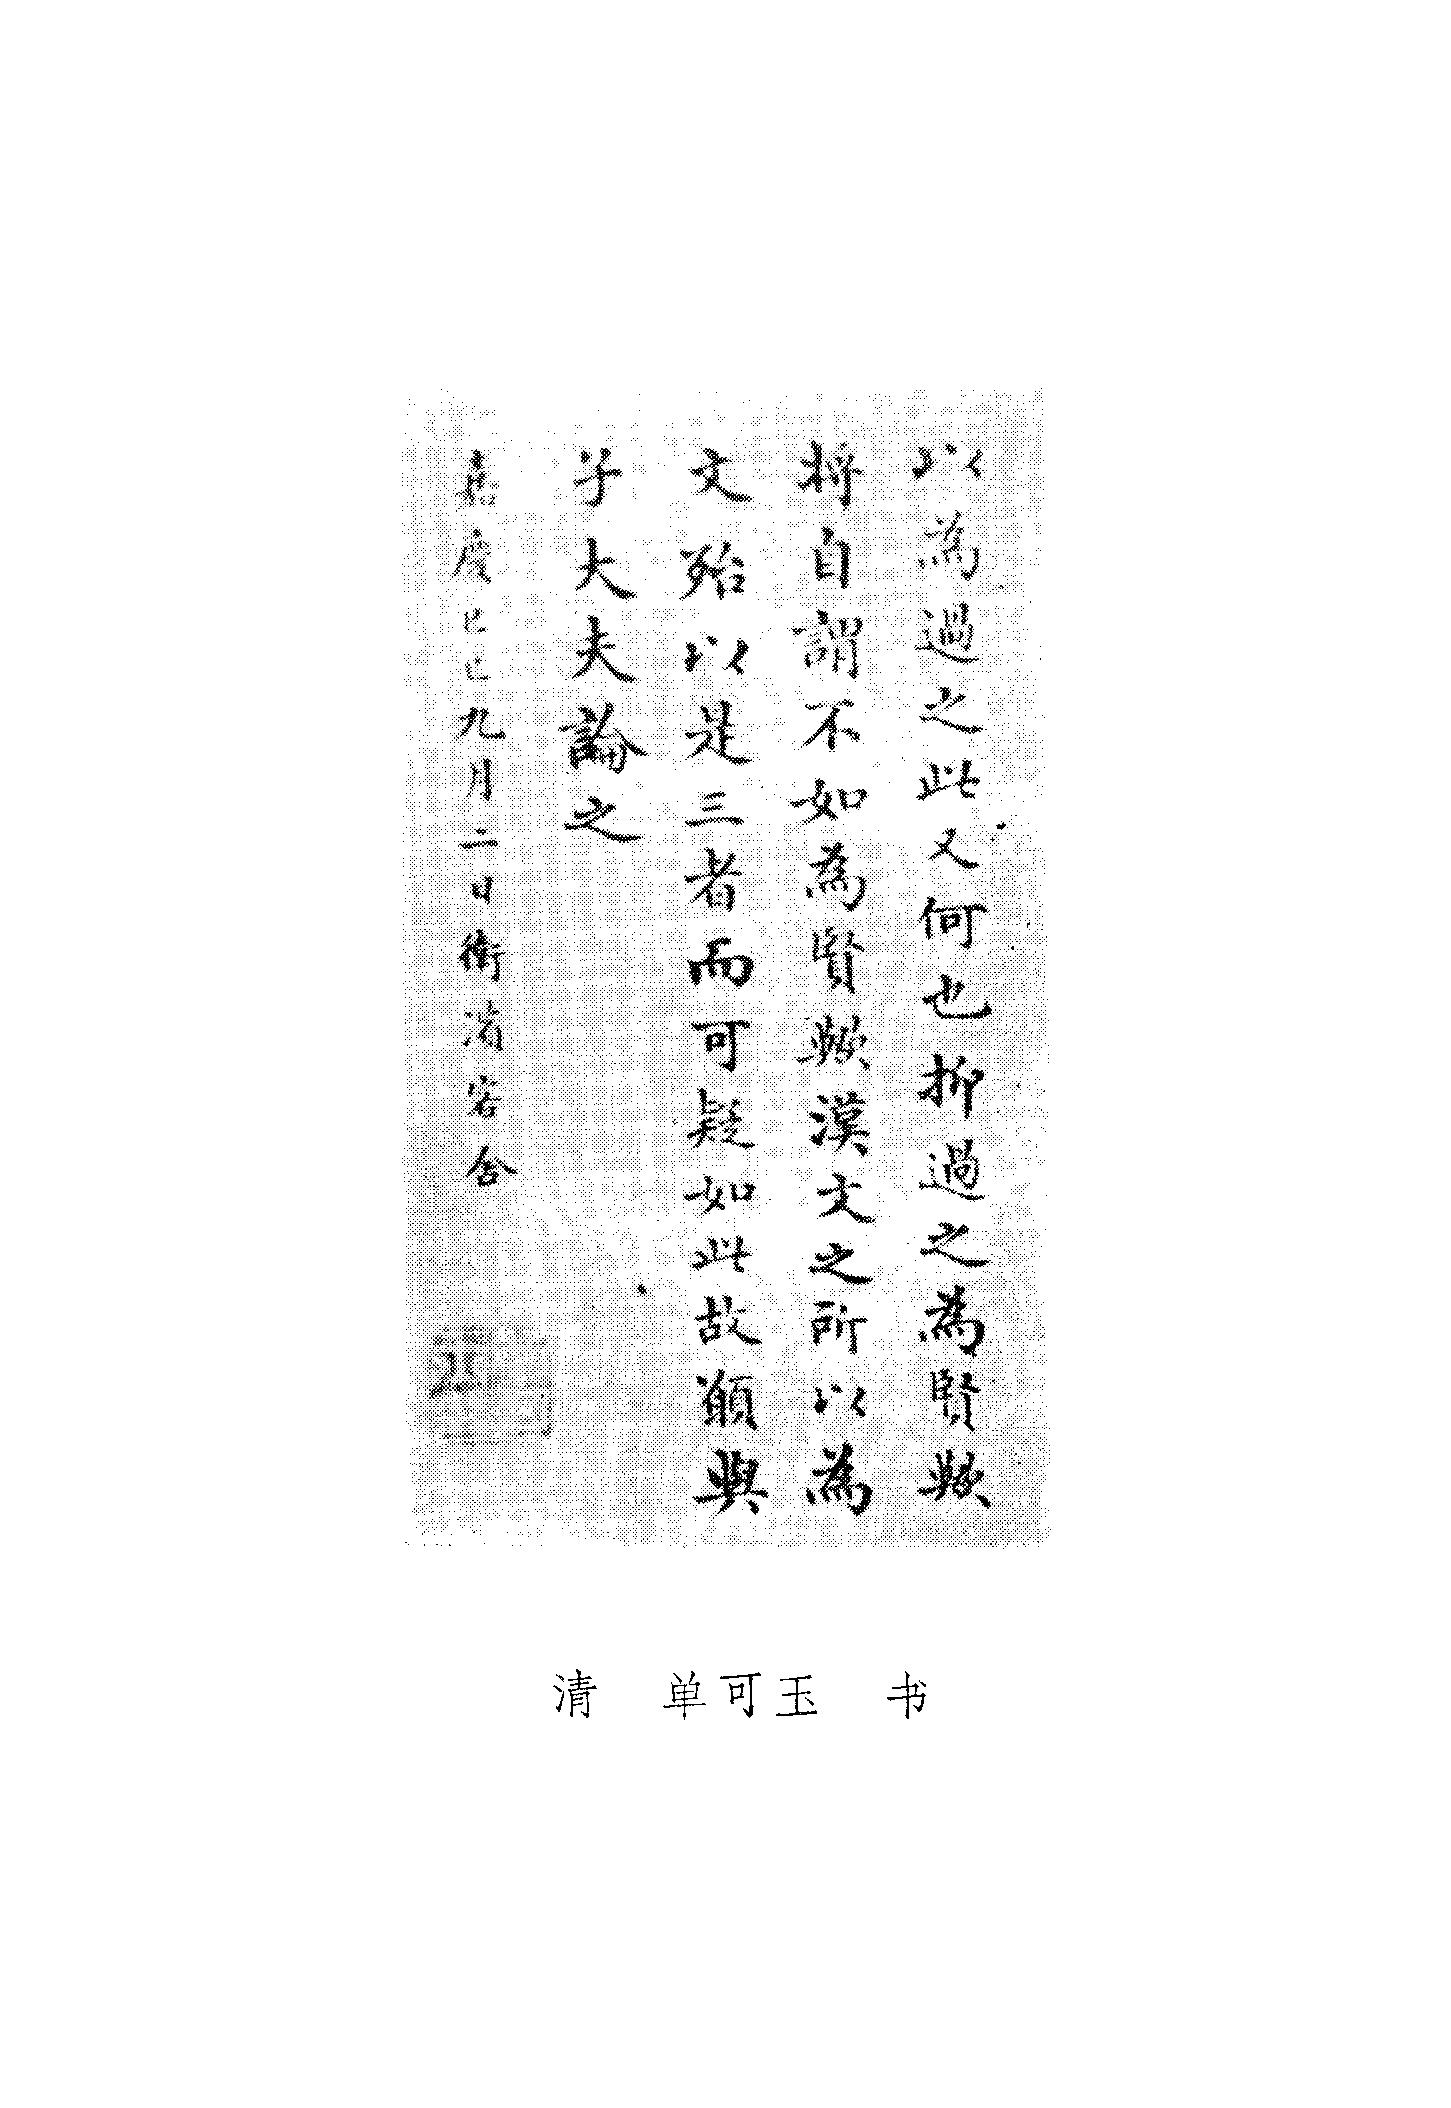 以為過之此又何也抑過之為賢歟
將自謂不如為賢歟漢文之所以為
文殆以是三者而可疑如此故願與
子大夫論之
嘉慶己巳九月二日衛濱客舍
清 单可玉 书